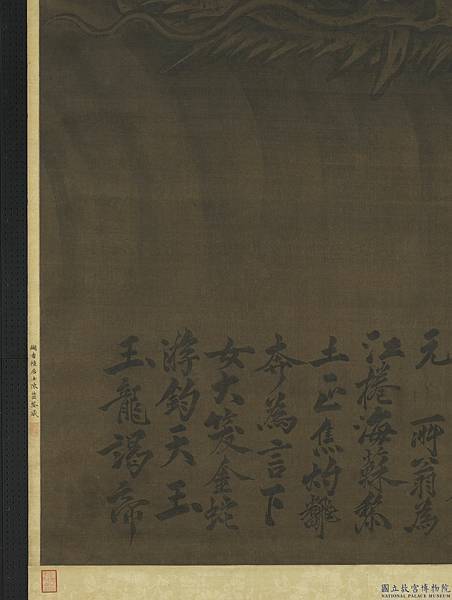 元 所翁為
江捲海蘇黎
土正焦灼
奔為言下
女大笑金蛇
游鈞天玉
玉龍謁帝
國立故宮博物院
NATIONAL PALACE MUSEUM